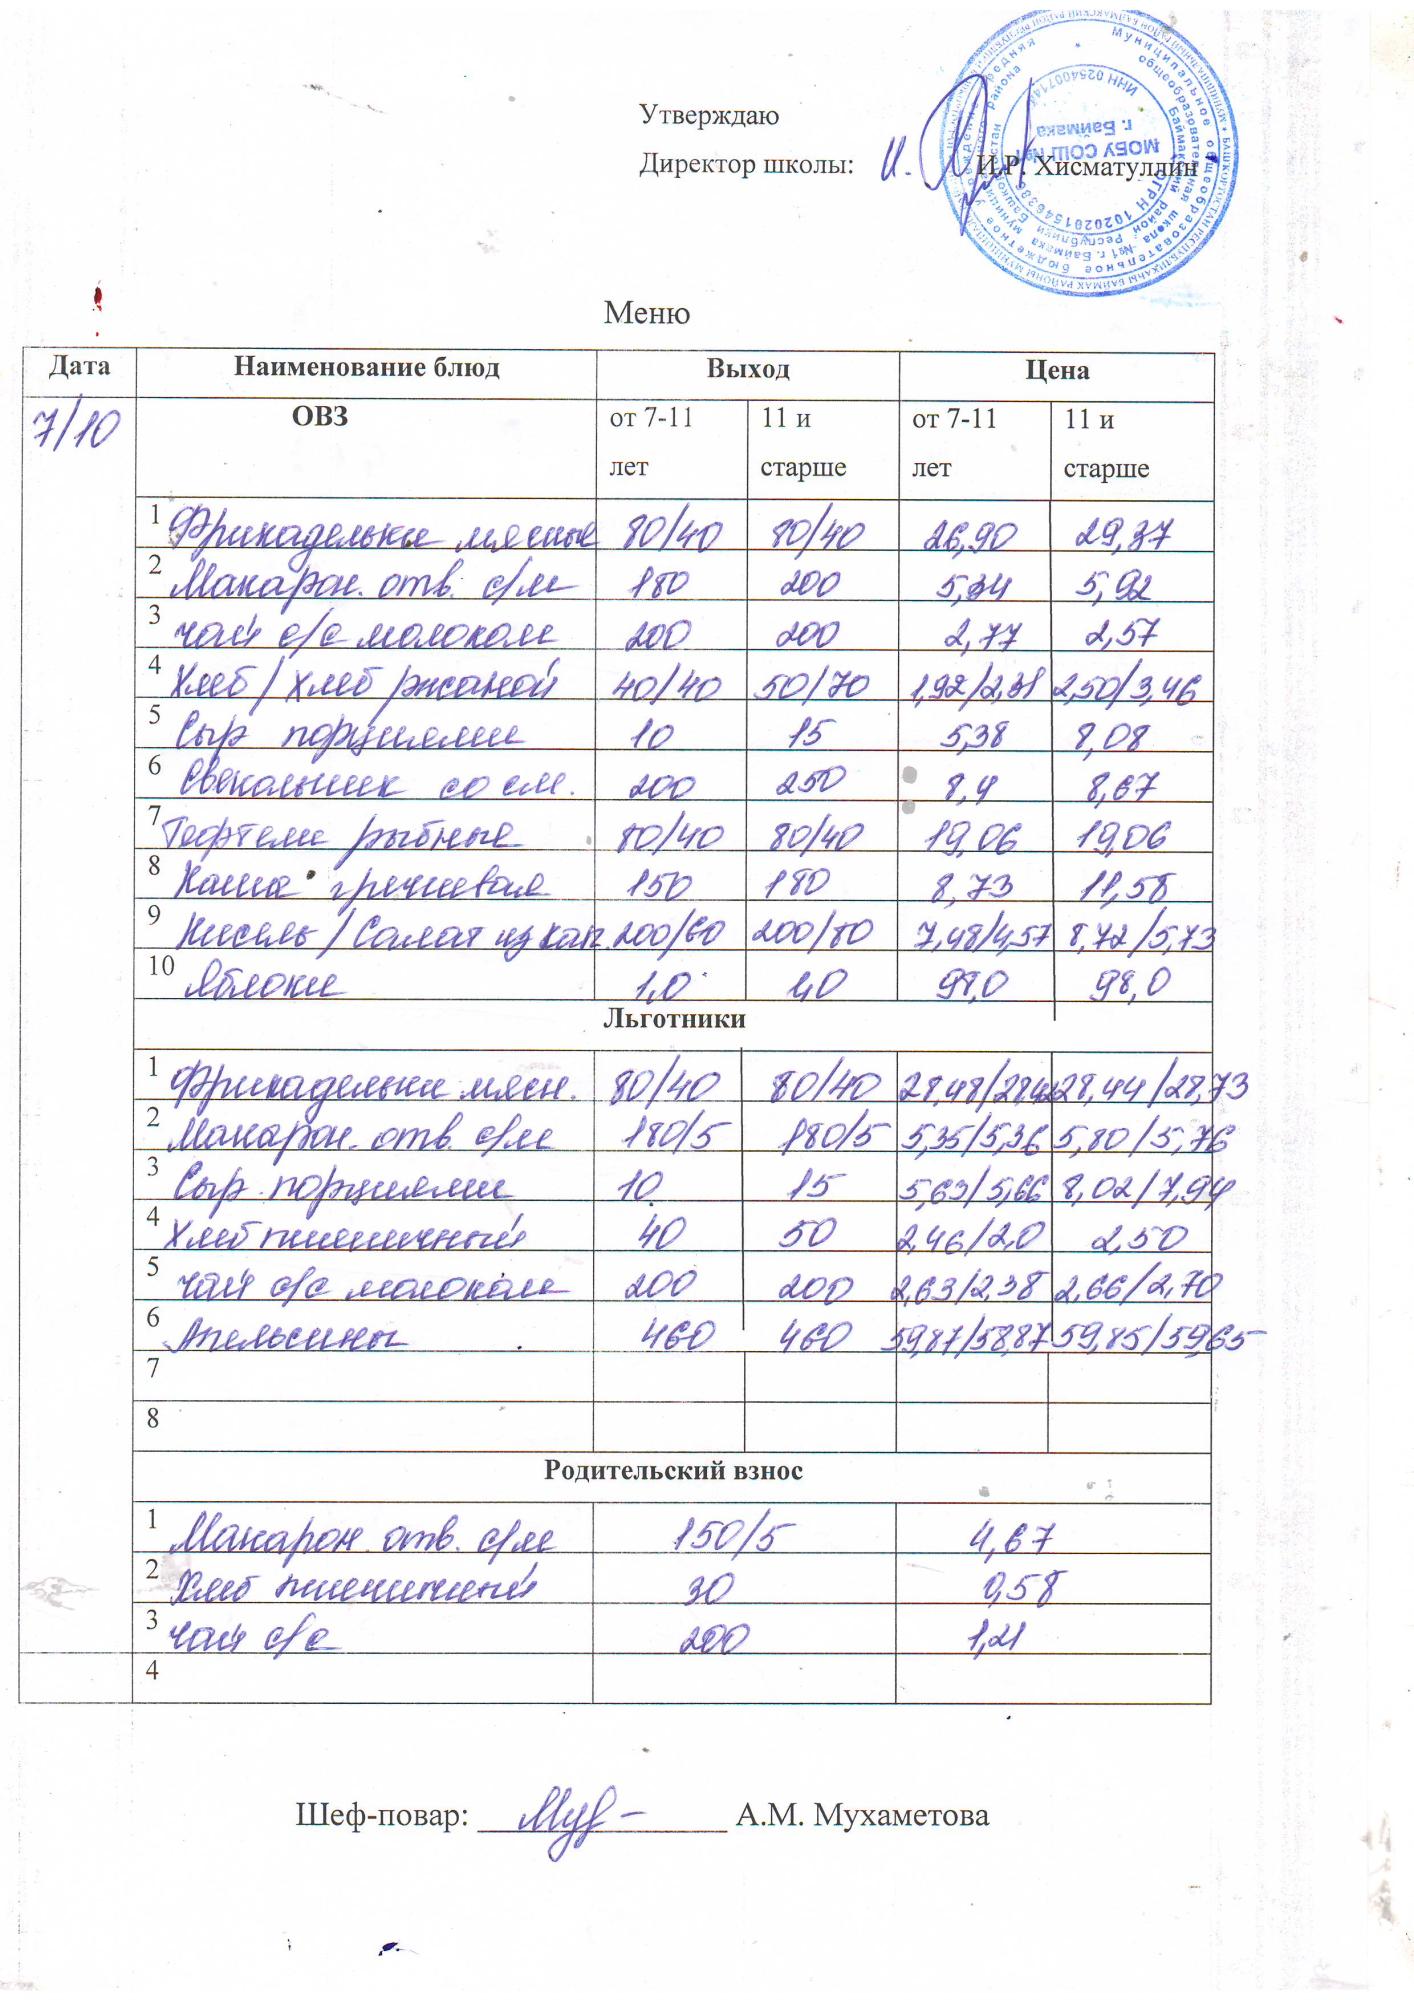 Утверждаю
Директор школы: И.Р. Хисматуллин
МОБУ СОШ №1
г. Баймака
Меню
Дата Наименование блюд Выход Цена
7/10 ОВЗ от 7-11 лет 11 и старше от 7-11 лет 11 и старше
1 Фрикадельки мясные 80/40 80/40 26,90 29,37
2 Макарон. отв. с/м 180 200 5,34 5,92
3 чай с/с молоком 200 200 2,77 2,57
4 Хлеб / хлеб ржаной 40/40 50/70 1,92/2,31 2,50/3,46
5 Сыр порциями 10 15 5,38 8,08
6 Свекольник со см. 200 250 8,4 8,67
7 Тефтели рыбные 80/40 80/40 19,06 19,06
8 Каша гречневая 150 180 8,73 11,58
9 Кисель / Салат из кап. 200/60 200/80 7,48/4,57 8,72/5,73
10 Яблоки 1,0 1,0 98,0 98,0
Льготники
1 Фрикадельки мясн. 80/40 80/40 28,48/ 28,44/28,73
2 Макарон. отв. с/м 180/5 180/5 5,35/5,36 5,80/5,76
3 Сыр порциями 10 15 5,63/5,66 8,02/7,94
4 Хлеб пшеничный 40 50 2,46/2,0 2,50
5 чай с/с молоком 200 200 2,63/2,38 2,66/2,70
6 Апельсины 460 460 59,87/58,87 59,85/59,65
7
8
Родительский взнос
1 Макарон. отв. с/м 150/5 4,67
2 Хлеб пшеничный 30 0,58
3 чай с/с 200 1,21
4
Шеф-повар: А.М. Мухаметова